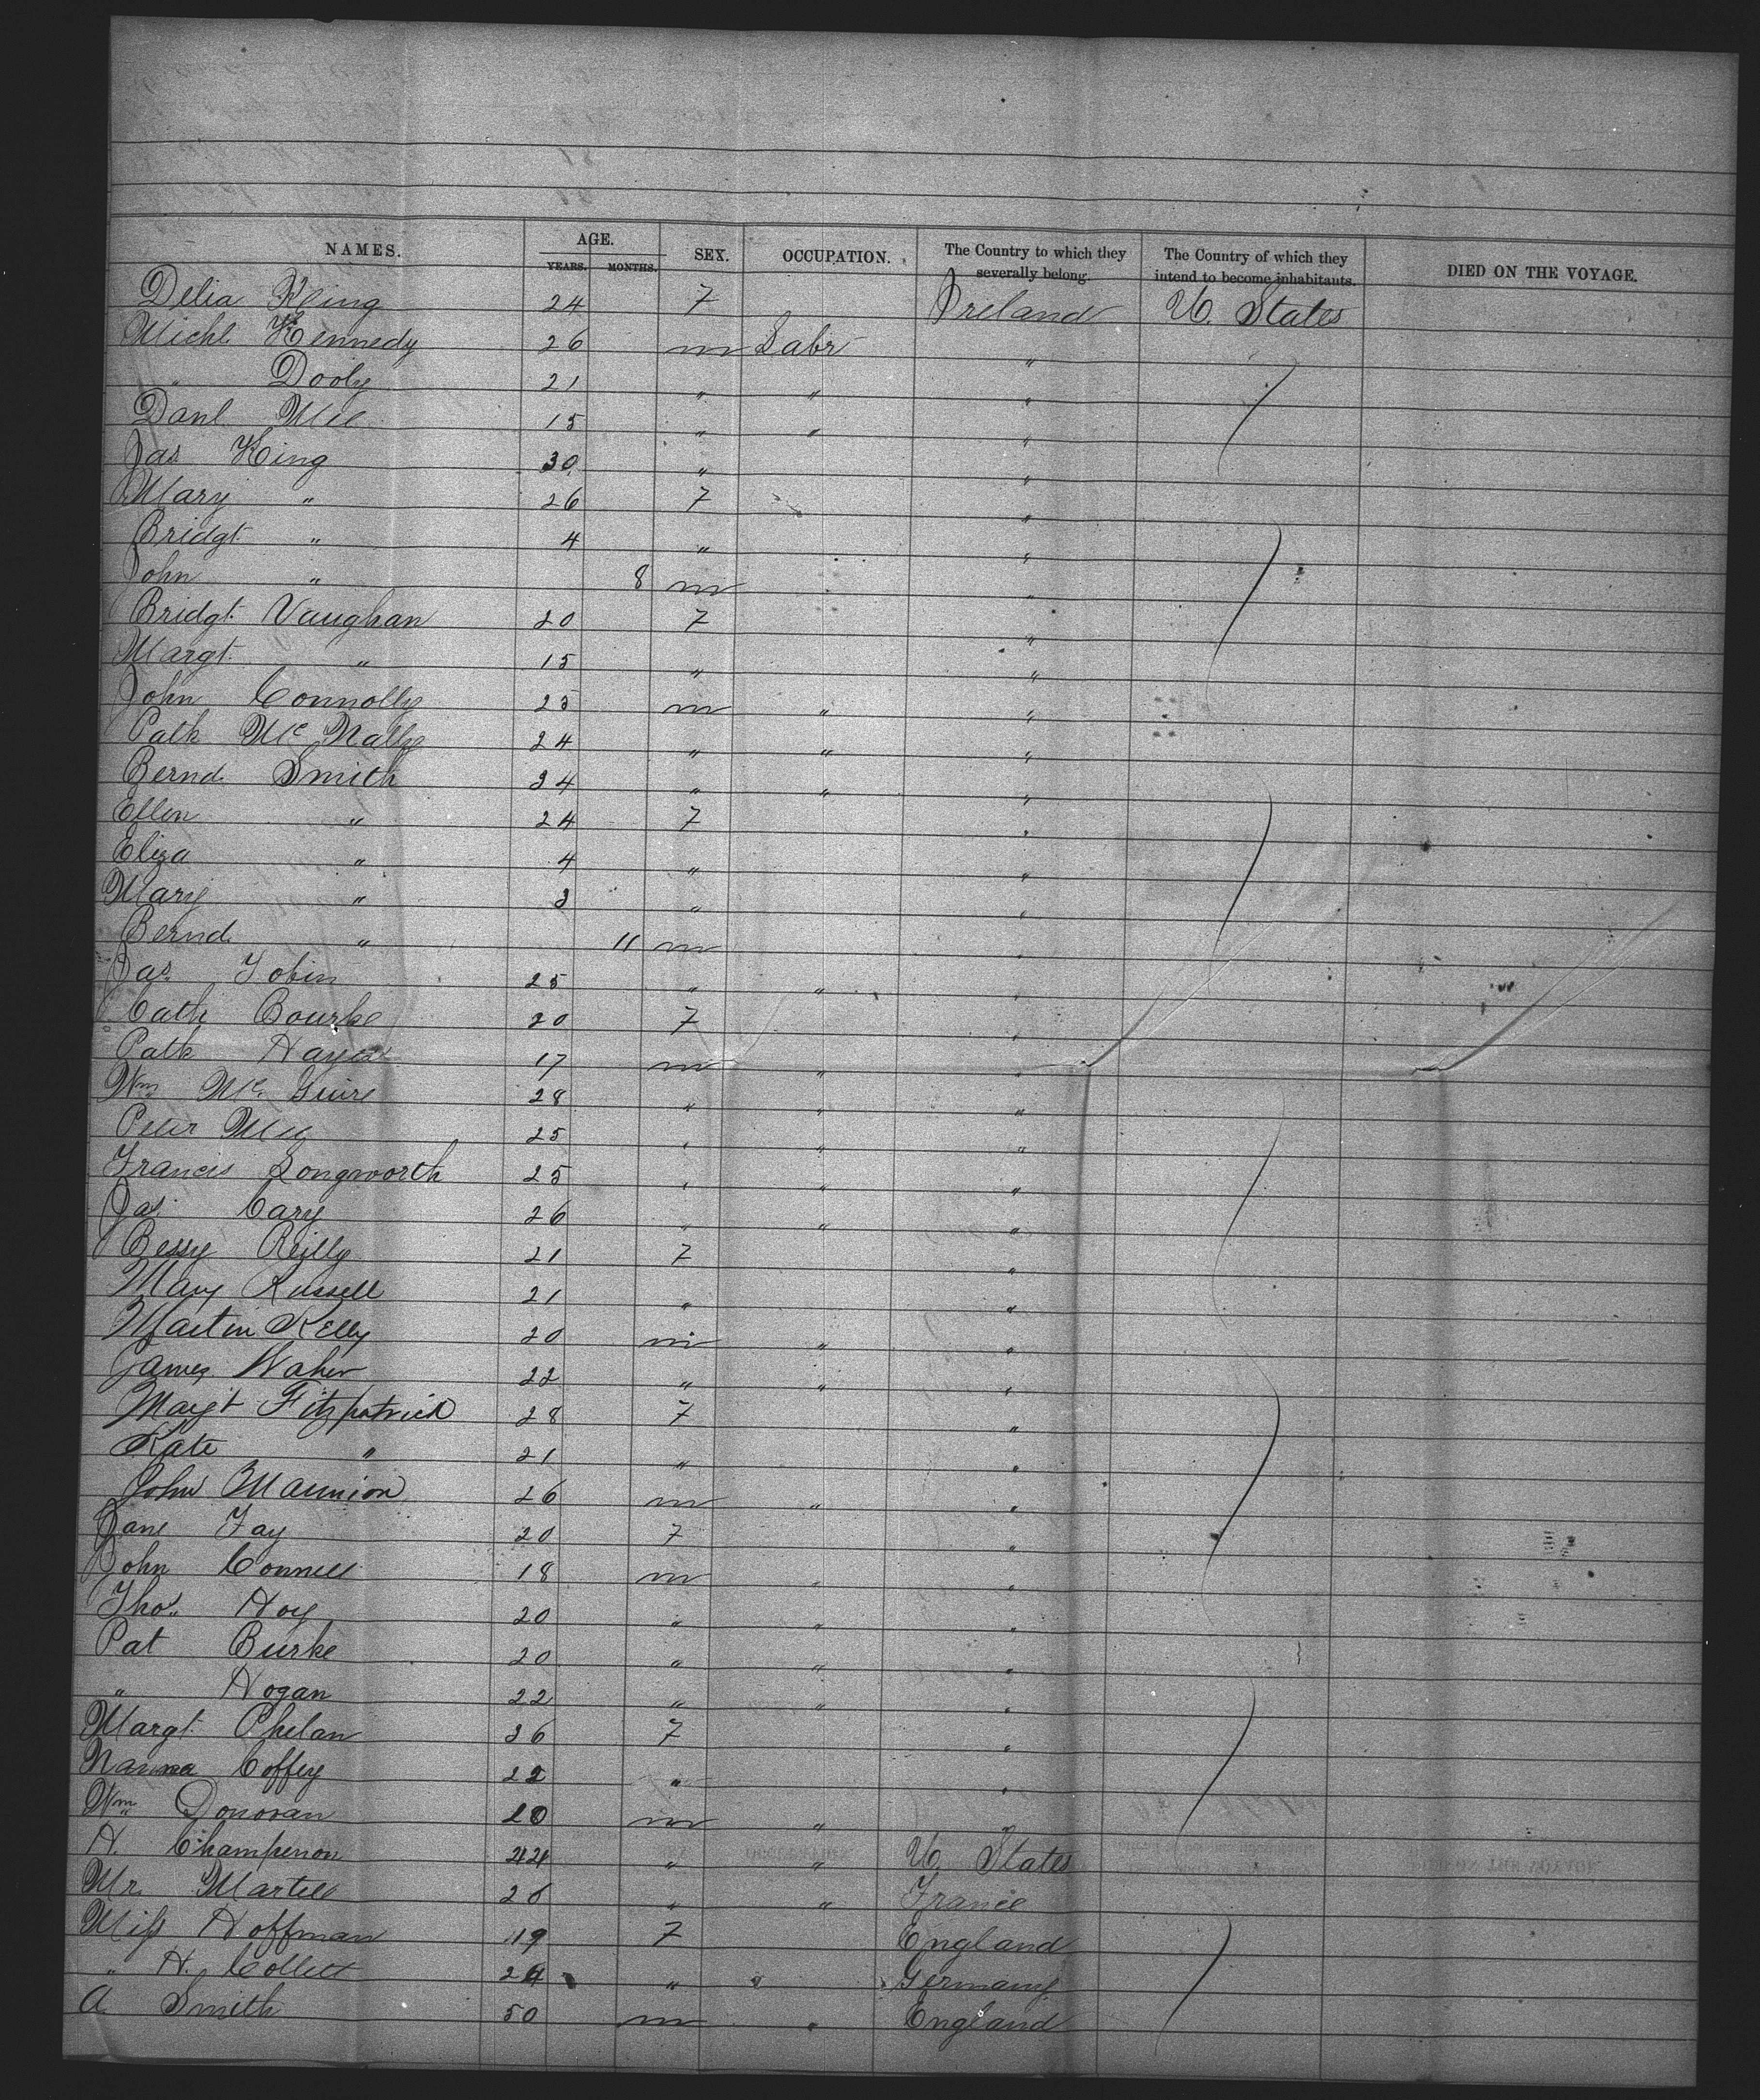 NAMES. AGE. YEARS. MONTHS. SEX. OCCUPATION. The Country to which they severally belong. The Country of which they intend to become inhabitants. DIED ON THE VOYAGE.
Delia King 24 F Ireland U. States
Michl Kennedy 26 m Labr "
" Dooly 21 " " "
Danl 15 " " "
Jas King 30 " "
Mary " 26 F "
Bridgt " 4 " "
John " 8 m "
Bridgt Vaughan 20 F "
Margt " 15 " "
John Connolly 25 m " "
Patk McNally 24 " " "
Bernd Smith 24 " " "
Ellen " 24 F "
Eliza " 4 " "
Mary " 3 " "
Bernd " 11 m "
Jas Tobin 25 " " "
Cath Bourke 20 F "
Patk Hayes 17 m " "
Wm McGuire 28 " " "
Peter 25 " " "
Francis Longworth 25 " " "
Jas Cary 26 " " "
Bessy Reilly 21 F "
Mary Russell 21 " "
Martin Kelly 20 m " "
James 22 " " "
Margt Fitzpatrick 28 F "
Kate " 21 " "
John Mannion 26 m " "
Jane Fay 20 F "
John Connell 18 m " "
Thos Hoy 20 " " "
Pat Burke 20 " " "
" Hogan 22 " " "
Margt Phelan 26 F "
Coffey 22 " "
Wm Donovan 20 m " "
H. Champenon 44 " " U. States
Mr Martell 26 " " France
Miss Hoffman 19 F England
" H. Collett 24 " " Germany
A Smith 50 m " England